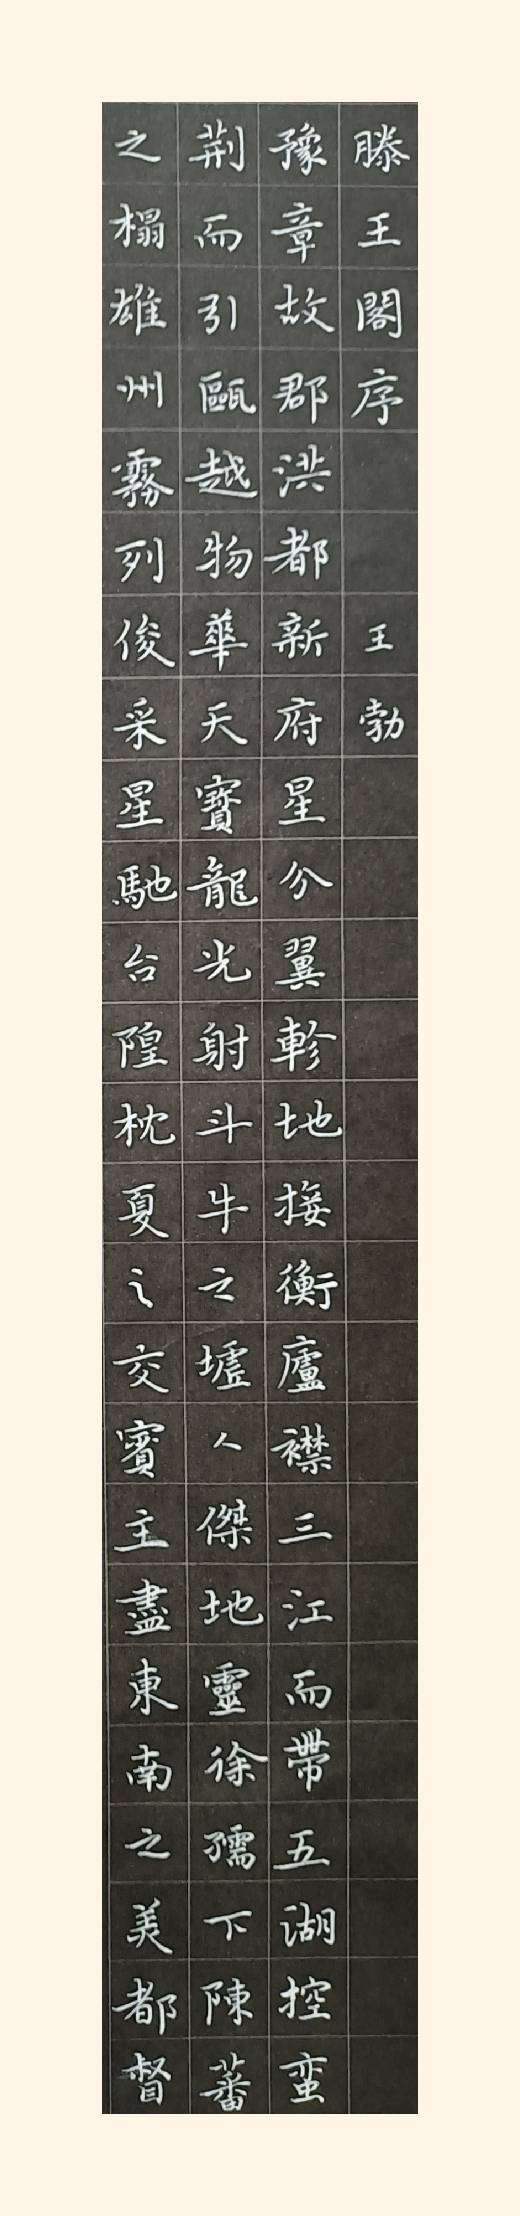 滕王閣序 王勃
豫章故郡洪都新府星分翼軫地接衡廬襟三江而帶五湖控蛮
荆而引甌越物華天寶龍光射斗牛之墟人傑地靈徐孺下陳蕃
之榻雄州霧列俊采星馳台隍枕夏之交賓主盡東南之美都督